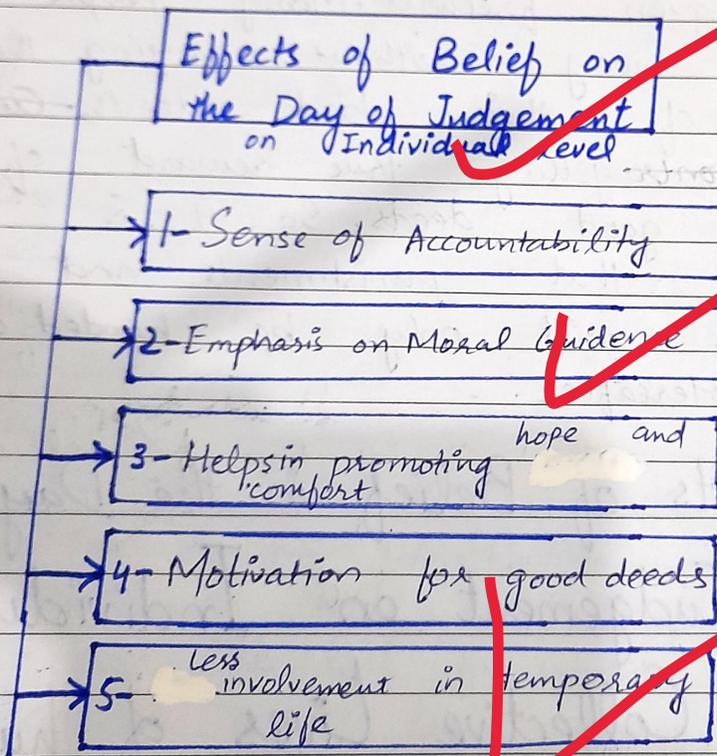 Effects of Belief on
the Day of Judgement
on Individual level
1- Sense of Accountability
2- Emphasis on Moral Guidence
hope and
3- Helps in promoting
comfort
4- Motivation for good deeds
Less
5- involvement in temporary
life